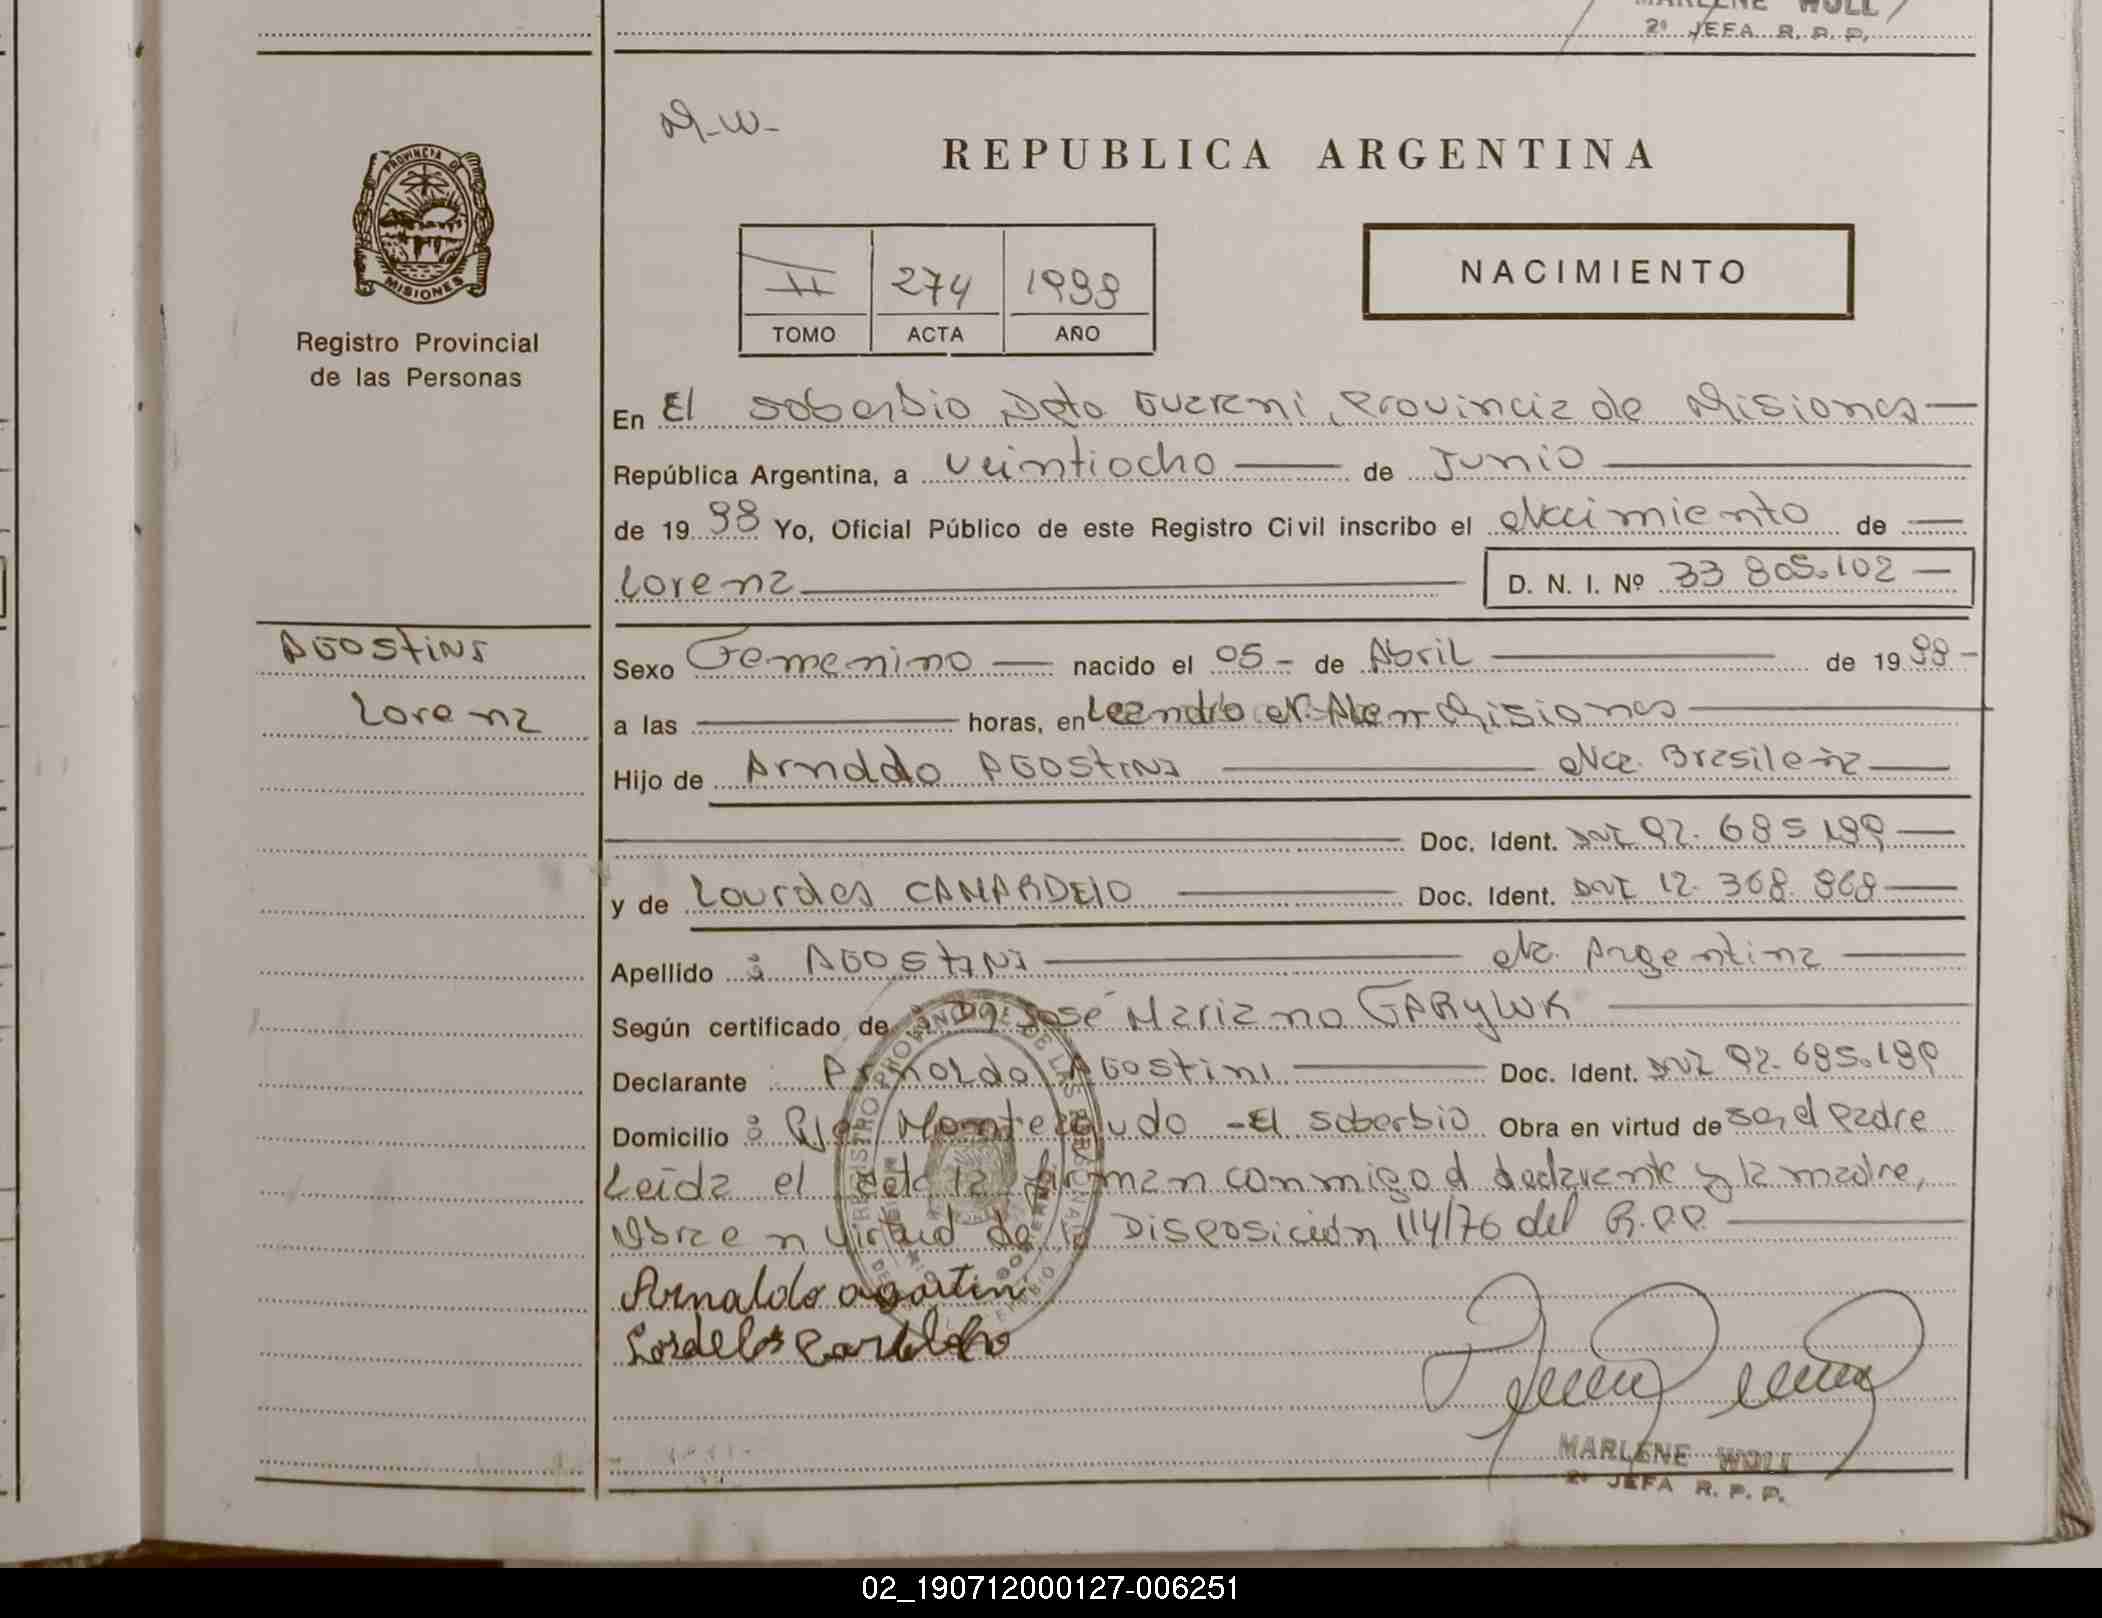 MARLENE WOLL
2º JEFA R. P. P.
M-W-
REPUBLICA ARGENTINA
PROVINCIA DE
MISIONES
Registro Provincial
de las Personas
II 274 1988
TOMO ACTA AÑO
NACIMIENTO
En El Soberbio Dpto Guarani, Provincia de Misiones
República Argentina, a veintiocho de Junio
de 1988 Yo, Oficial Público de este Registro Civil inscribo el Nacimiento de
Lorena D. N. I. Nº 33 805.102
AGOSTINI
Lorena
Sexo Femenino nacido el 05- de Abril de 1988-
a las horas, en Leandro N. Alem Misiones
Hijo de Arnaldo AGOSTINI Nac. Brasileña
Doc. Ident. DNI 92.685.199
y de Lourdes Doc. Ident. DNI 12.368.868
Apellido : AGOSTINI Nac. Argentina
Según certificado de : Dr. José Mariano GARYLUK
Declarante Arnoldo Agostini Doc. Ident. DNI 92.685.199
Domicilio : Pje Monteagudo -El Soberbio Obra en virtud de ser el Padre
Leída el acta la firman conmigo el declarante y la madre,
Obra en virtud de la Disposición 114/76 del R.P.P.
Arnaldo agostini
MARLENE WOLL
2º JEFA R. P. P.
02_190712000127-006251